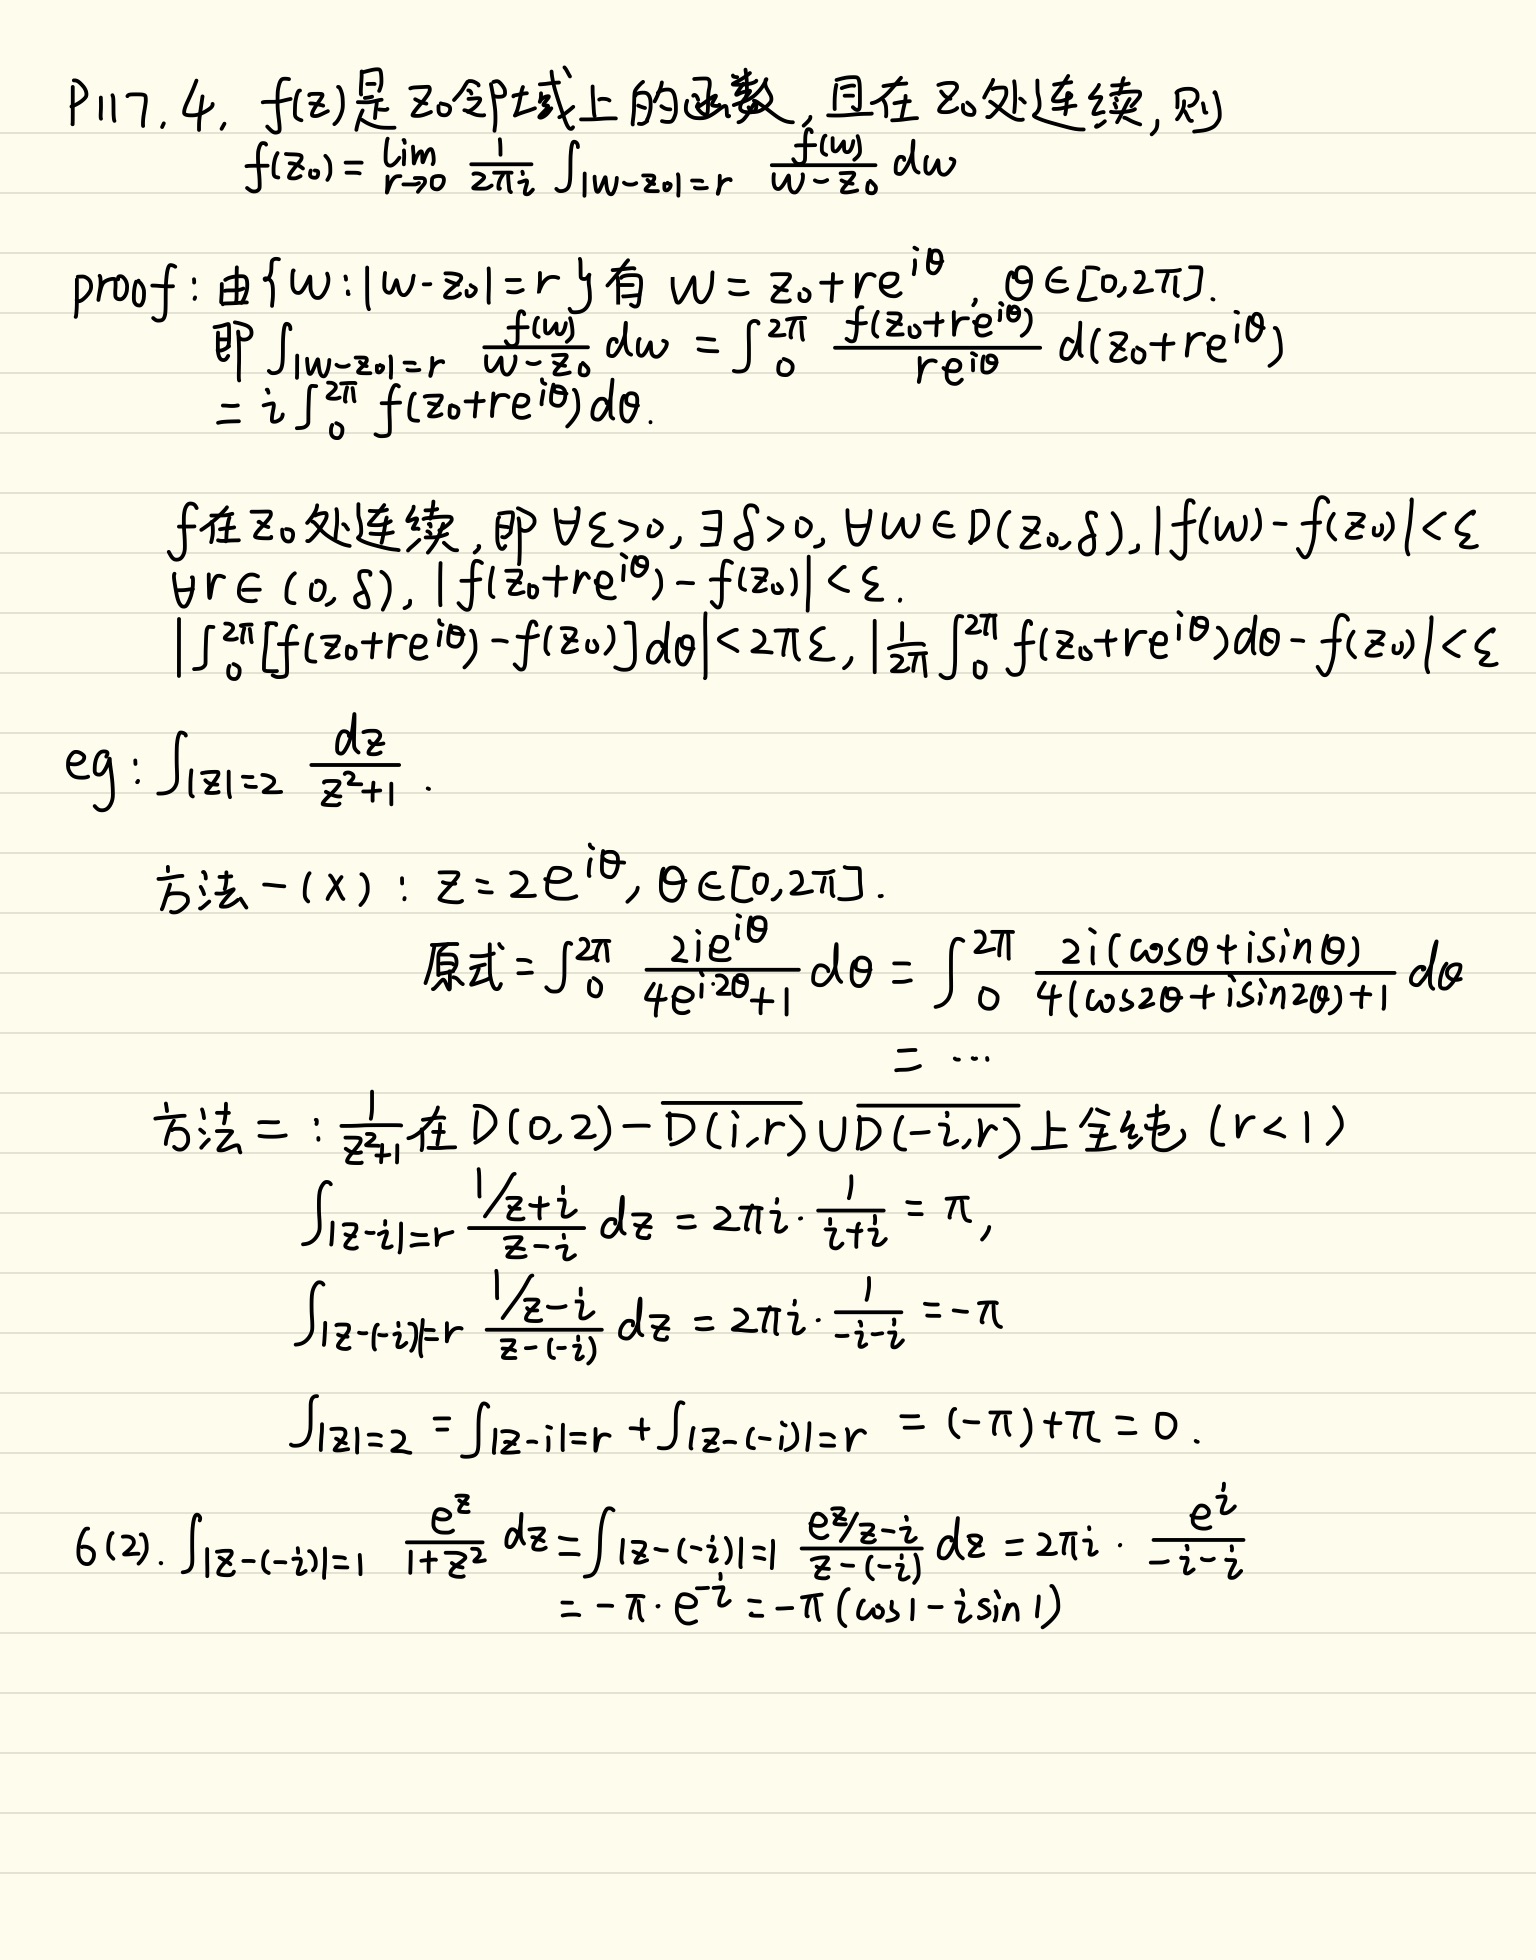 P117.4. f(z)是z₀邻域上的函数,且在z₀处连续,则
f(z₀) = lim_{r→0} \frac{1}{2πi} ∫_{|w-z₀|=r} \frac{f(w)}{w-z₀} dw
proof: 由{w:|w-z₀|=r}有 w = z₀+re^{iθ}, θ∈[0,2π].
即 ∫_{|w-z₀|=r} \frac{f(w)}{w-z₀} dw = ∫_0^{2π} \frac{f(z₀+re^{iθ})}{re^{iθ}} d(z₀+re^{iθ})
= i∫_0^{2π} f(z₀+re^{iθ})dθ.
f在z₀处连续,即∀ε>0,∃δ>0,∀w∈D(z₀,δ),|f(w)-f(z₀)|<ε
∀r∈(0,δ),|f(z₀+re^{iθ})-f(z₀)|<ε.
|∫_0^{2π}[f(z₀+re^{iθ})-f(z₀)]dθ|<2πε,|\frac{1}{2π}∫_0^{2π}f(z₀+re^{iθ})dθ-f(z₀)|<ε
eg: ∫_{|z|=2} \frac{dz}{z²+1}.
方法一(×): z=2e^{iθ}, θ∈[0,2π].
原式=∫_0^{2π} \frac{2ie^{iθ}}{4e^{i·2θ}+1} dθ = ∫_0^{2π} \frac{2i(cosθ+isinθ)}{4(cos2θ+isin2θ)+1} dθ
= ...
方法二: \frac{1}{z²+1}在D(0,2)-\overline{D(i,r)}∪\overline{D(-i,r)}上全纯(r<1)
∫_{|z-i|=r} \frac{1/z+i}{z-i} dz = 2πi·\frac{1}{i+i} = π,
∫_{|z-(-i)|=r} \frac{1/z-i}{z-(-i)} dz = 2πi·\frac{1}{-i-i} = -π
∫_{|z|=2} = ∫_{|z-i|=r} + ∫_{|z-(-i)|=r} = (-π)+π = 0.
6(2). ∫_{|z-(-i)|=1} \frac{e^z}{1+z²} dz = ∫_{|z-(-i)|=1} \frac{e^z/z-i}{z-(-i)} dz = 2πi·\frac{e^i}{-i-i}
= -π·e^{-i} = -π(cos1-isin1)